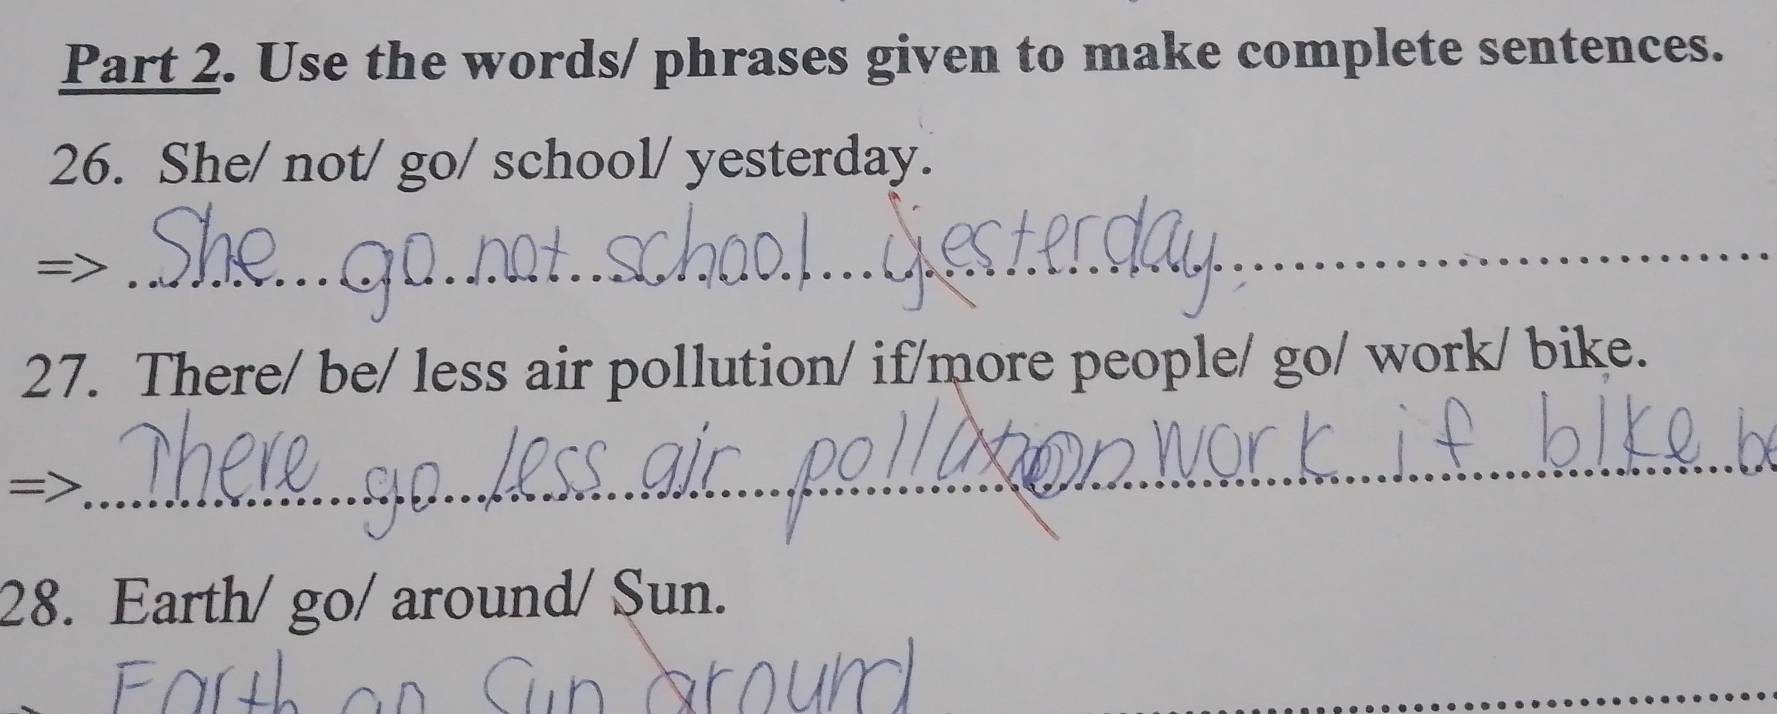 Part 2. Use the words/ phrases given to make complete sentences.
26. She/ not/ go/ school/ yesterday.
=> She go not school yesterday.
27. There/ be/ less air pollution/ if/more people/ go/ work/ bike.
=> There go less air pollution work if bike be
28. Earth/ go/ around/ Sun.
Earth go Sun around